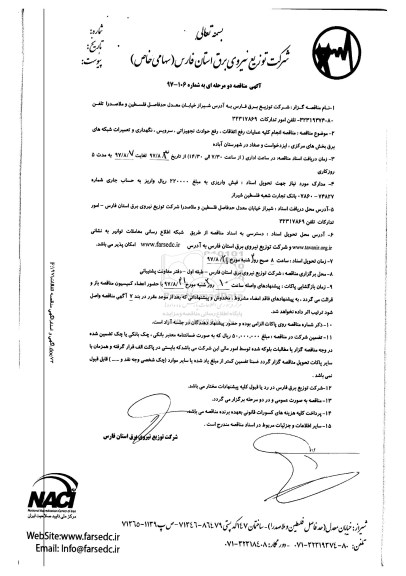 بسمه تعالی
شماره:
تاریخ:
پیوست:
شرکت توزیع نیروی برق استان فارس (سهامی خاص)
آگهی مناقصه دو مرحله ای به شماره ۱۰۶-۹۷
۱-نام مناقصه گزار: شرکت توزیع برق فارس به آدرس شیراز خیابان معدل حدفاصل فلسطین و ملاصدرا تلفن
۸۰-۳۲۳۱۹۳۷۴ تلفن امور تدارکات ۳۲۳۱۷۸۶۹
۲-موضوع مناقصه: مناقصه انجام کلیه عملیات رفع اتفاقات، رفع حوادث تجهیزاتی، سرویس، نگهداری و تعمیرات شبکه های
برق بخش های مرکزی، ایزدخواست و صغاد در شهرستان آباده
۳- زمان دریافت اسناد مناقصه: در ساعت اداری ( از ساعت ۷/۳۰ الی ۱۴/۳۰) از تاریخ ۹۷/۸/ لغایت ۹۷/۸/۷ به مدت ۵
روزکاری
۴- مدارک مورد نیاز جهت تحویل اسناد: فیش واریزی به مبلغ ۲۲۰۰۰۰ ریال واریز به حساب جاری شماره
۷۴۸۲۷-۷۸۶۰ بانک تجارت شعبه فلسطین شیراز
۵-آدرس محل دریافت اسناد: شیراز خیابان معدل حدفاصل فلسطین و ملاصدرا شرکت توزیع نیروی برق استان فارس - امور
تدارکات تلفن ۳۲۳۱۷۸۶۹
۶- آدرس محل تحویل اسناد: دسترسی به اسناد مناقصه از طریق شبکه اطلاع رسانی معاملات توانیر به نشانی
www.tavanir.org.ir و شرکت توزیع نیروی برق استان فارس به آدرس www.farsedc.ir امکان پذیر می باشد.
۷- زمان تحویل اسناد: ساعت ۸ صبح روز شنبه مورخ ۹۷/۸/
۸- محل برگزاری مناقصه: شرکت توزیع نیروی برق استان فارس – طبقه اول – دفتر معاونت پشتیبانی
۹- زمان بازگشایی پاکات: پیشنهادهای واصله ساعت ۱۰ روز شنبه مورخ ۹۷/۸/ با حضور اعضاء کمیسیون مناقصه باز و
قرائت می گردد، به پیشنهادهای فاقد امضاء، مشروط، مخدوش و پیشنهاداتی که بعد از موعد مقرر در بند ۷ آگهی مناقصه واصل
شود ترتیب اثر داده نخواهد شد.
۱۰-ذکر شماره مناقصه روی پاکات الزامی بوده و حضور پیشنهاد دهندگان در جلسه آزاد است.
۱۱- تضمین شرکت در مناقصه: مبلغ ۵۰,۰۰۰,۰۰۰ ریال که به صورت ضمانتنامه معتبر بانکی، چک بانکی یا چک تضمین شده
در وجه مناقصه گزار یا مطالبات بلوکه شده توسط امور مالی این شرکت می باشد که بایستی در پاکت الف قرار گرفته و همزمان با
سایر پاکات تحویل مناقصه گزار گردد ضمنا تضمین کمتر از مبلغ یاد شده یا سایر موارد (چک شخصی وجه نقد و ....) قابل قبول
نمی باشد.
۱۲-شرکت توزیع نیروی برق فارس در رد یا قبول کلیه پیشنهادات مختار می باشد.
۱۳- مناقصه به صورت عمومی و در دو مرحله برگزار می گردد.
۱۴- پرداخت کلیه هزینه های کسورات قانونی بعهده برنده مناقصه می باشد.
۱۵- سایر اطلاعات و جزئیات مربوط در اسناد مناقصه مندرج است.
شرکت توزیع نیروی برق استان فارس
NACI
مرکز ملی تایید صلاحیت ایران
شیراز: خیابان معدل (حد فاصل فلسطین و ملاصدرا) - ساختمان ۱۴۷ کدپستی ۸۶۴۷۹-۷۱۳۴۶ ص پ ۱۱۳۹-۷۱۳۶۵
تلفن: ۸۰-۳۲۳۱۹۳۷۴-۰۷۱ دورنگار: ۳۲۳۱۸۴۰۸-۰۷۱
WebSite:www.farsedc.ir
Email: Info@farsedc.ir